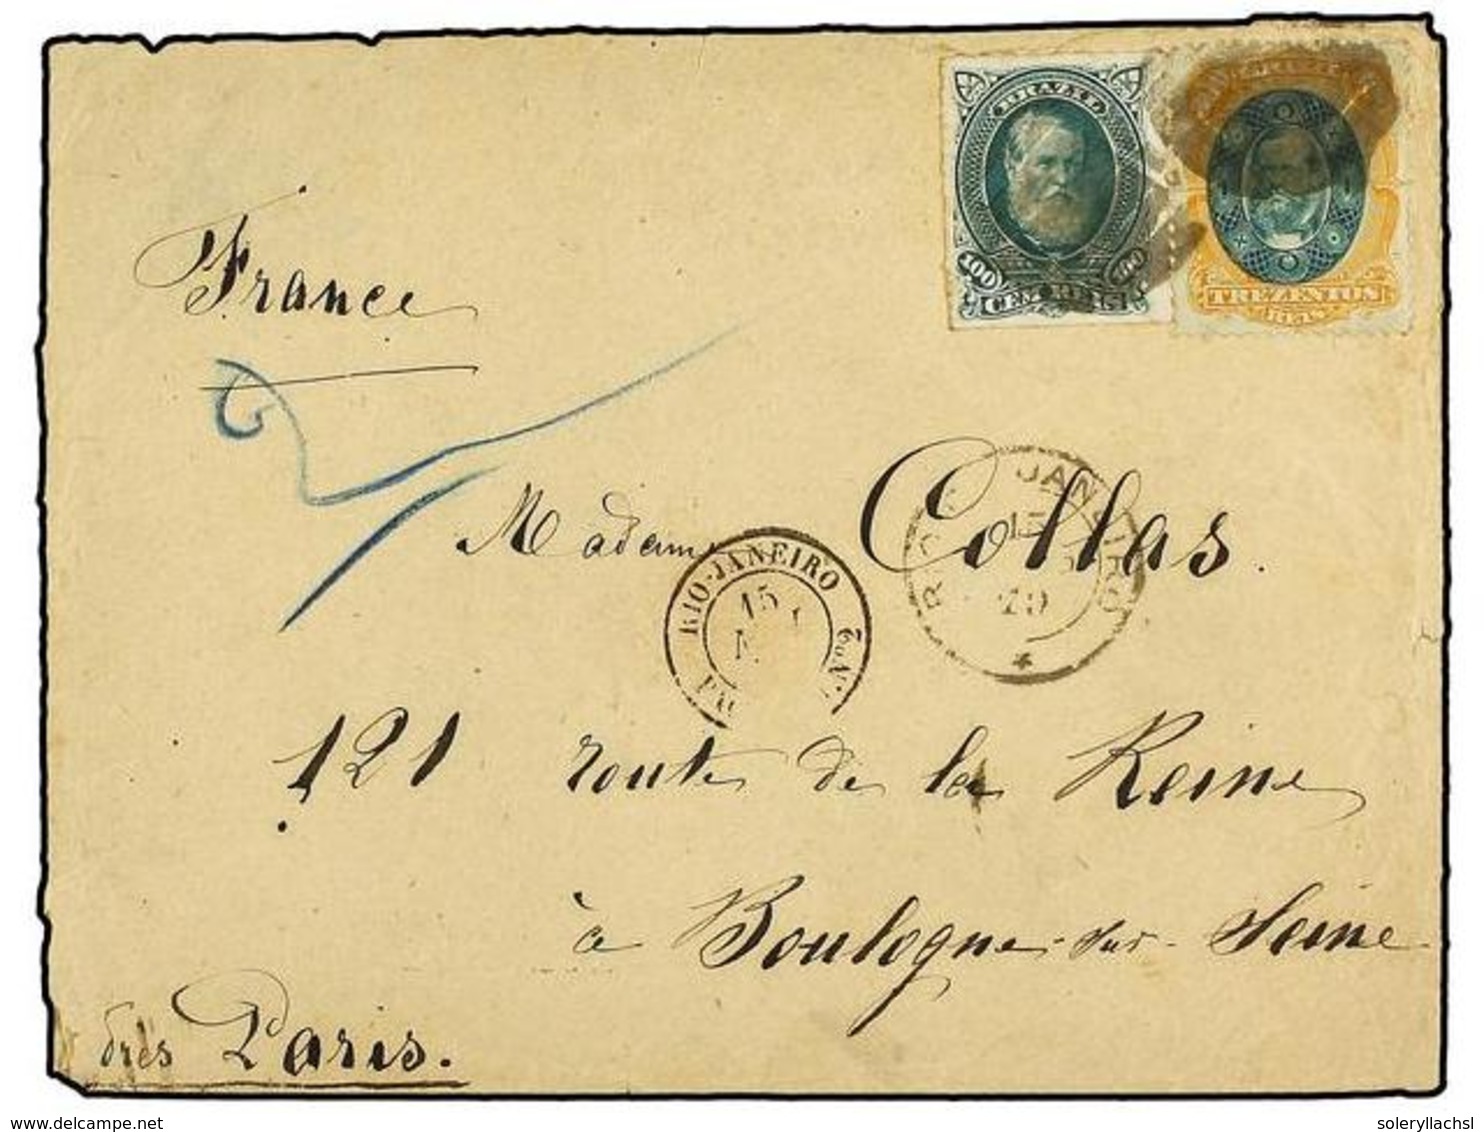 BRAZIL
100 100
CEM REIS
TREZENTOS
REIS
France
Madame Collas.
RIO-JANEIRO
15
JANEIRO
15
79
121 route de la Reine
à Boulogne-sur-Seine
près Paris.
delcampe.net
soleryllachsl